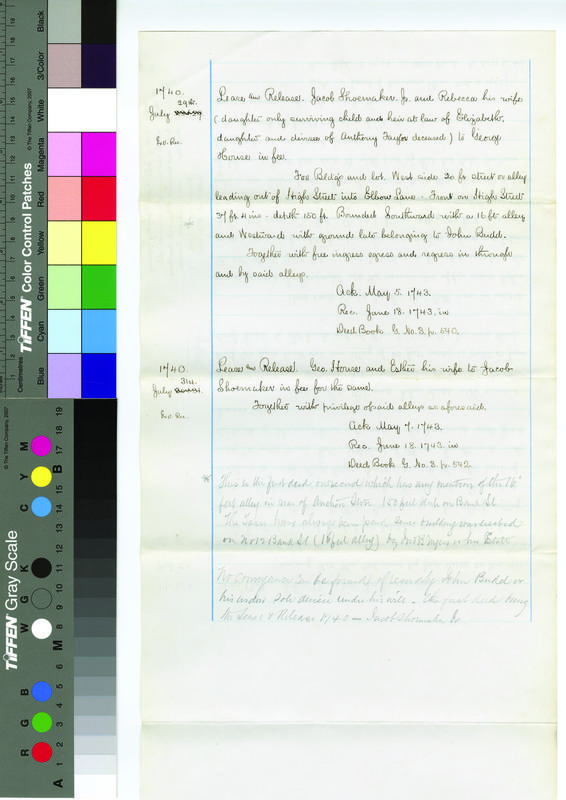 Black
3/Color
White
Magenta
Red
Yellow
Green
Cyan
Blue
© The Tiffen Company, 2007
TIFFEN Color Control Patches
Centimetres
TIFFEN Gray Scale
© The Tiffen Company, 2007
R G B W G K C Y M
A 1 2 3 4 5 6 M 8 9 10 11 12 13 14 15 B 17 18 19
1740.
July 29th.
Lease and Release. Jacob Shoemaker Jr. and Rebecca his wife
(daughter only surviving child and heir at law of Elizabeth
daughter and devisee of Anthony Taylor deceased) to George
House in fee.
For Bldgs and lot. West side 20 ft street or alley
leading out of High Street into Elbow Lane. Front on High Street
37 ft. 4 ins - depth 150 ft. Bounded Southward with a 16 ft alley
and Westward with ground late belonging to John Budd.
Together with free ingress egress and regress in through
and by said alleys.
Ack. May 5. 1743.
Rec. June 18. 1743. in
Deed Book G. No. 3. p. 540.
1740.
July 31st.
Lease and Release. Geo. House and Esther his wife to Jacob
Shoemaker in fee for the same.
Together with privilege of said alleys as aforesaid.
Ack. May 7. 1743.
Rec. June 18. 1743. in
Deed Book G. No. 3. p. 542.
* This is the first deed on record which has any mention of the 16
feet alley in rear of Anchor Store 150 feet on Bank St
The have always been building was
on No 12 Bank St (16 feet alley) by Myers
No conveyance can be found of record by John Budd or
his widow sole devisee under his will - the first deed being
the Lease & Release 1740 - Jacob Shoemaker Jr